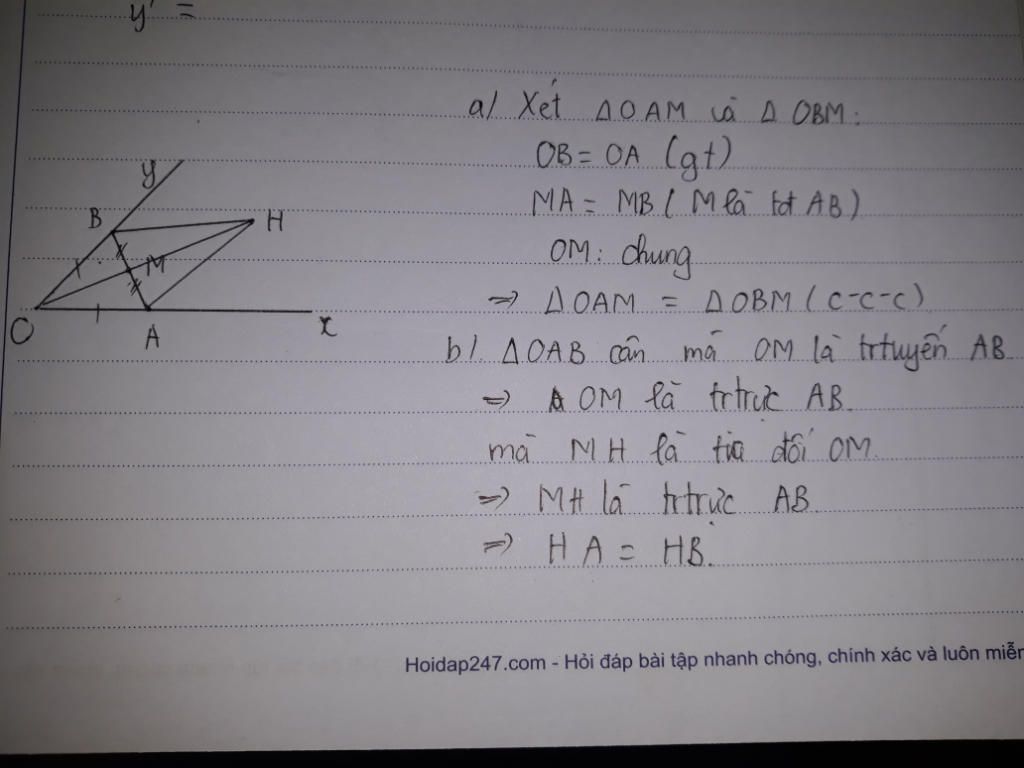 y' =
a/ Xét ΔOAM và Δ OBM:
OB = OA (gt)
MA = MB ( M là tđ AB)
OM: chung
=> ΔOAM = ΔOBM (c-c-c)
b/. ΔOAB cân mà OM là trtuyến AB
=> OM là trtrực AB.
mà MH là tia đối OM.
=> MH là trtrực AB
=> HA = HB.
y
B
H
M
O
A
x
Hoidap247.com - Hỏi đáp bài tập nhanh chóng, chính xác và luôn miễn